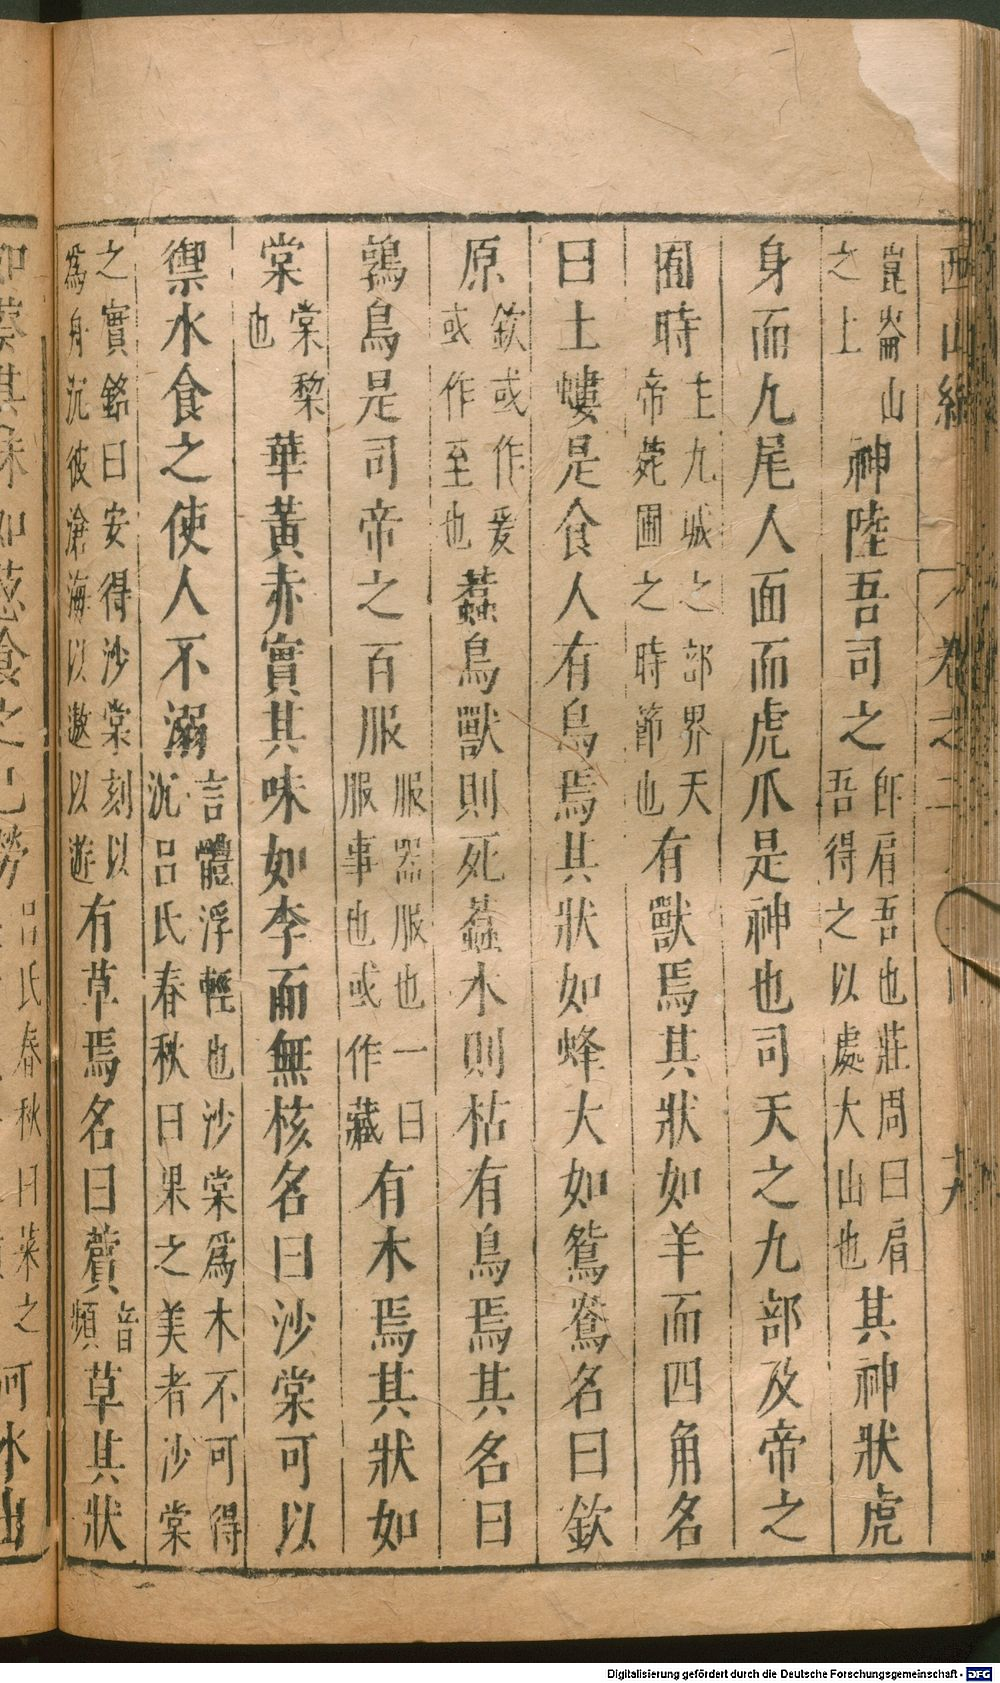 西山經 卷之二
崑崙山之上神陸吾司之卽肩吾也莊周曰肩吾得之以處大山也其神狀虎
身而九尾人面而虎爪是神也司天之九部及帝之
囿時主九域之部界天帝菀圃之時節也有獸焉其狀如羊而四角名
曰土螻是食人有鳥焉其狀如蜂大如鴛鴦名曰欽
原欽或作爰或作至也蠚鳥獸則死蠚木則枯有鳥焉其名曰
鶉鳥是司帝之百服服器服也一曰服事也或作藏有木焉其狀如
棠棠棃也華黃赤實其味如李而無核名曰沙棠可以
禦水食之使人不溺言體浮輕也沙棠爲木不可得沉呂氏春秋曰果之美者沙棠
之實銘曰安得沙棠刻以爲舟沉彼滄海以遨以遊有草焉名曰薲音頻草其狀
如葵其味如葱食之已勞呂氏春秋曰菜之
河水出
Digitalisierung gefördert durch die Deutsche Forschungsgemeinschaft - DFG